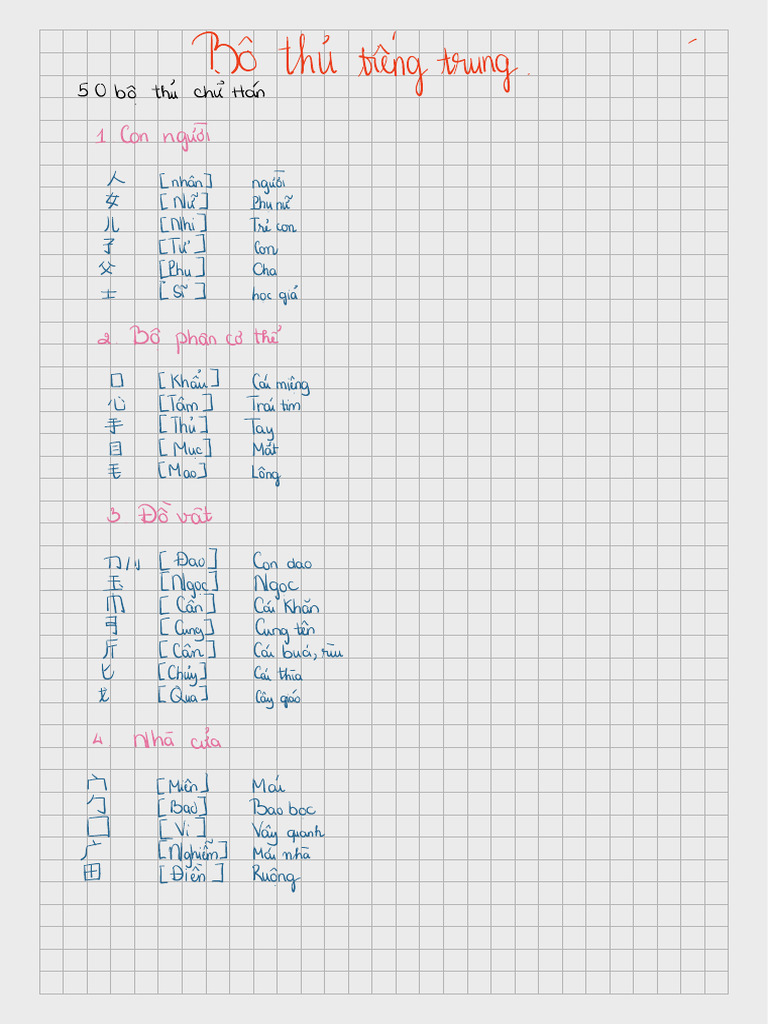 Bộ thủ tiếng trung.
50 bộ thủ chữ Hán
1 Con người
人 [nhân] người
女 [Nữ] Phụ nữ
儿 [Nhi] Trẻ con
子 [Tử] Con
父 [Phụ] Cha
士 [Sĩ] học giả
2. Bộ phận cơ thể
口 [Khẩu] Cái miệng
心 [Tâm] Trái tim
手 [Thủ] Tay
目 [Mục] Mắt
毛 [Mao] Lông
3 Đồ vật
刀/刂 [Đao] Con dao
玉 [Ngọc] Ngọc
巾 [Cân] Cái Khăn
弓 [Cung] Cung tên
斤 [Cân] Cái búa, rìu
匕 [Chủy] Cái thìa
戈 [Qua] Cây giáo
4. Nhà cửa
宀 [Miên] Mái
勹 [Bao] Bao bọc
囗 [Vi] Vây quanh
广 [Nghiễm] Mái nhà
田 [Điền] Ruộng